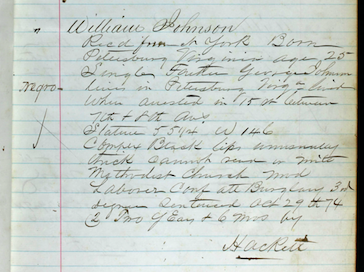 William Johnson
Resd from N York Born
Petersburg Virginia age 25
Single Father George Johnson
Negro lives in Petersburg Virg
When arrested in 15 st between
7th & 8th Avs
Stature 5 5 1/4 W 146
Complex Black lips unusually
thick Cannot read or write
Methodist Church Mod
Laborer Conf att Burglary 3rd
degree Sentenced Oct 29th 74
2 Two Years & 6 Mos by
Hackett